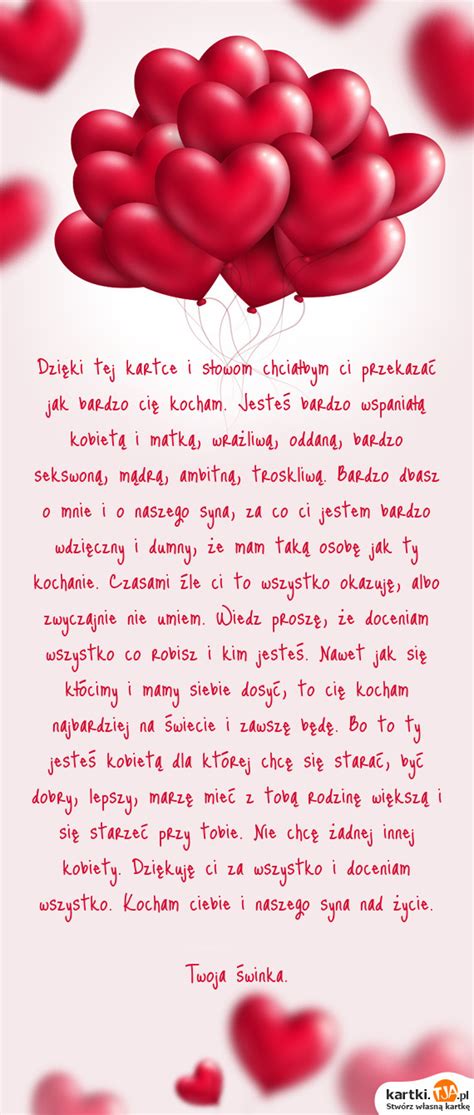 Dzięki tej kartce i słowom chciałbym ci przekazać
jak bardzo cię kocham. Jesteś bardzo wspaniałą
kobietą i matką, wrażliwą, oddaną, bardzo
sekswoną, mądrą, ambitną, troskliwą. Bardzo dbasz
o mnie i o naszego syna, za co ci jestem bardzo
wdzięczny i dumny, że mam taką osobę jak ty
kochanie. Czasami źle ci to wszystko okazuję, albo
zwyczajnie nie umiem. Wiedz proszę, że doceniam
wszystko co robisz i kim jesteś. Nawet jak się
kłócimy i mamy siebie dosyć, to cię kocham
najbardziej na świecie i zawszę będę. Bo to ty
jesteś kobietą dla której chcę się starać, być
dobry, lepszy, marzę mieć z tobą rodzinę większą i
się starzeć przy tobie. Nie chcę żadnej innej
kobiety. Dziękuję ci za wszystko i doceniam
wszystko. Kocham ciebie i naszego syna nad życie.
Twoja świnka.
kartki.TJA.pl
Stwórz własną kartkę